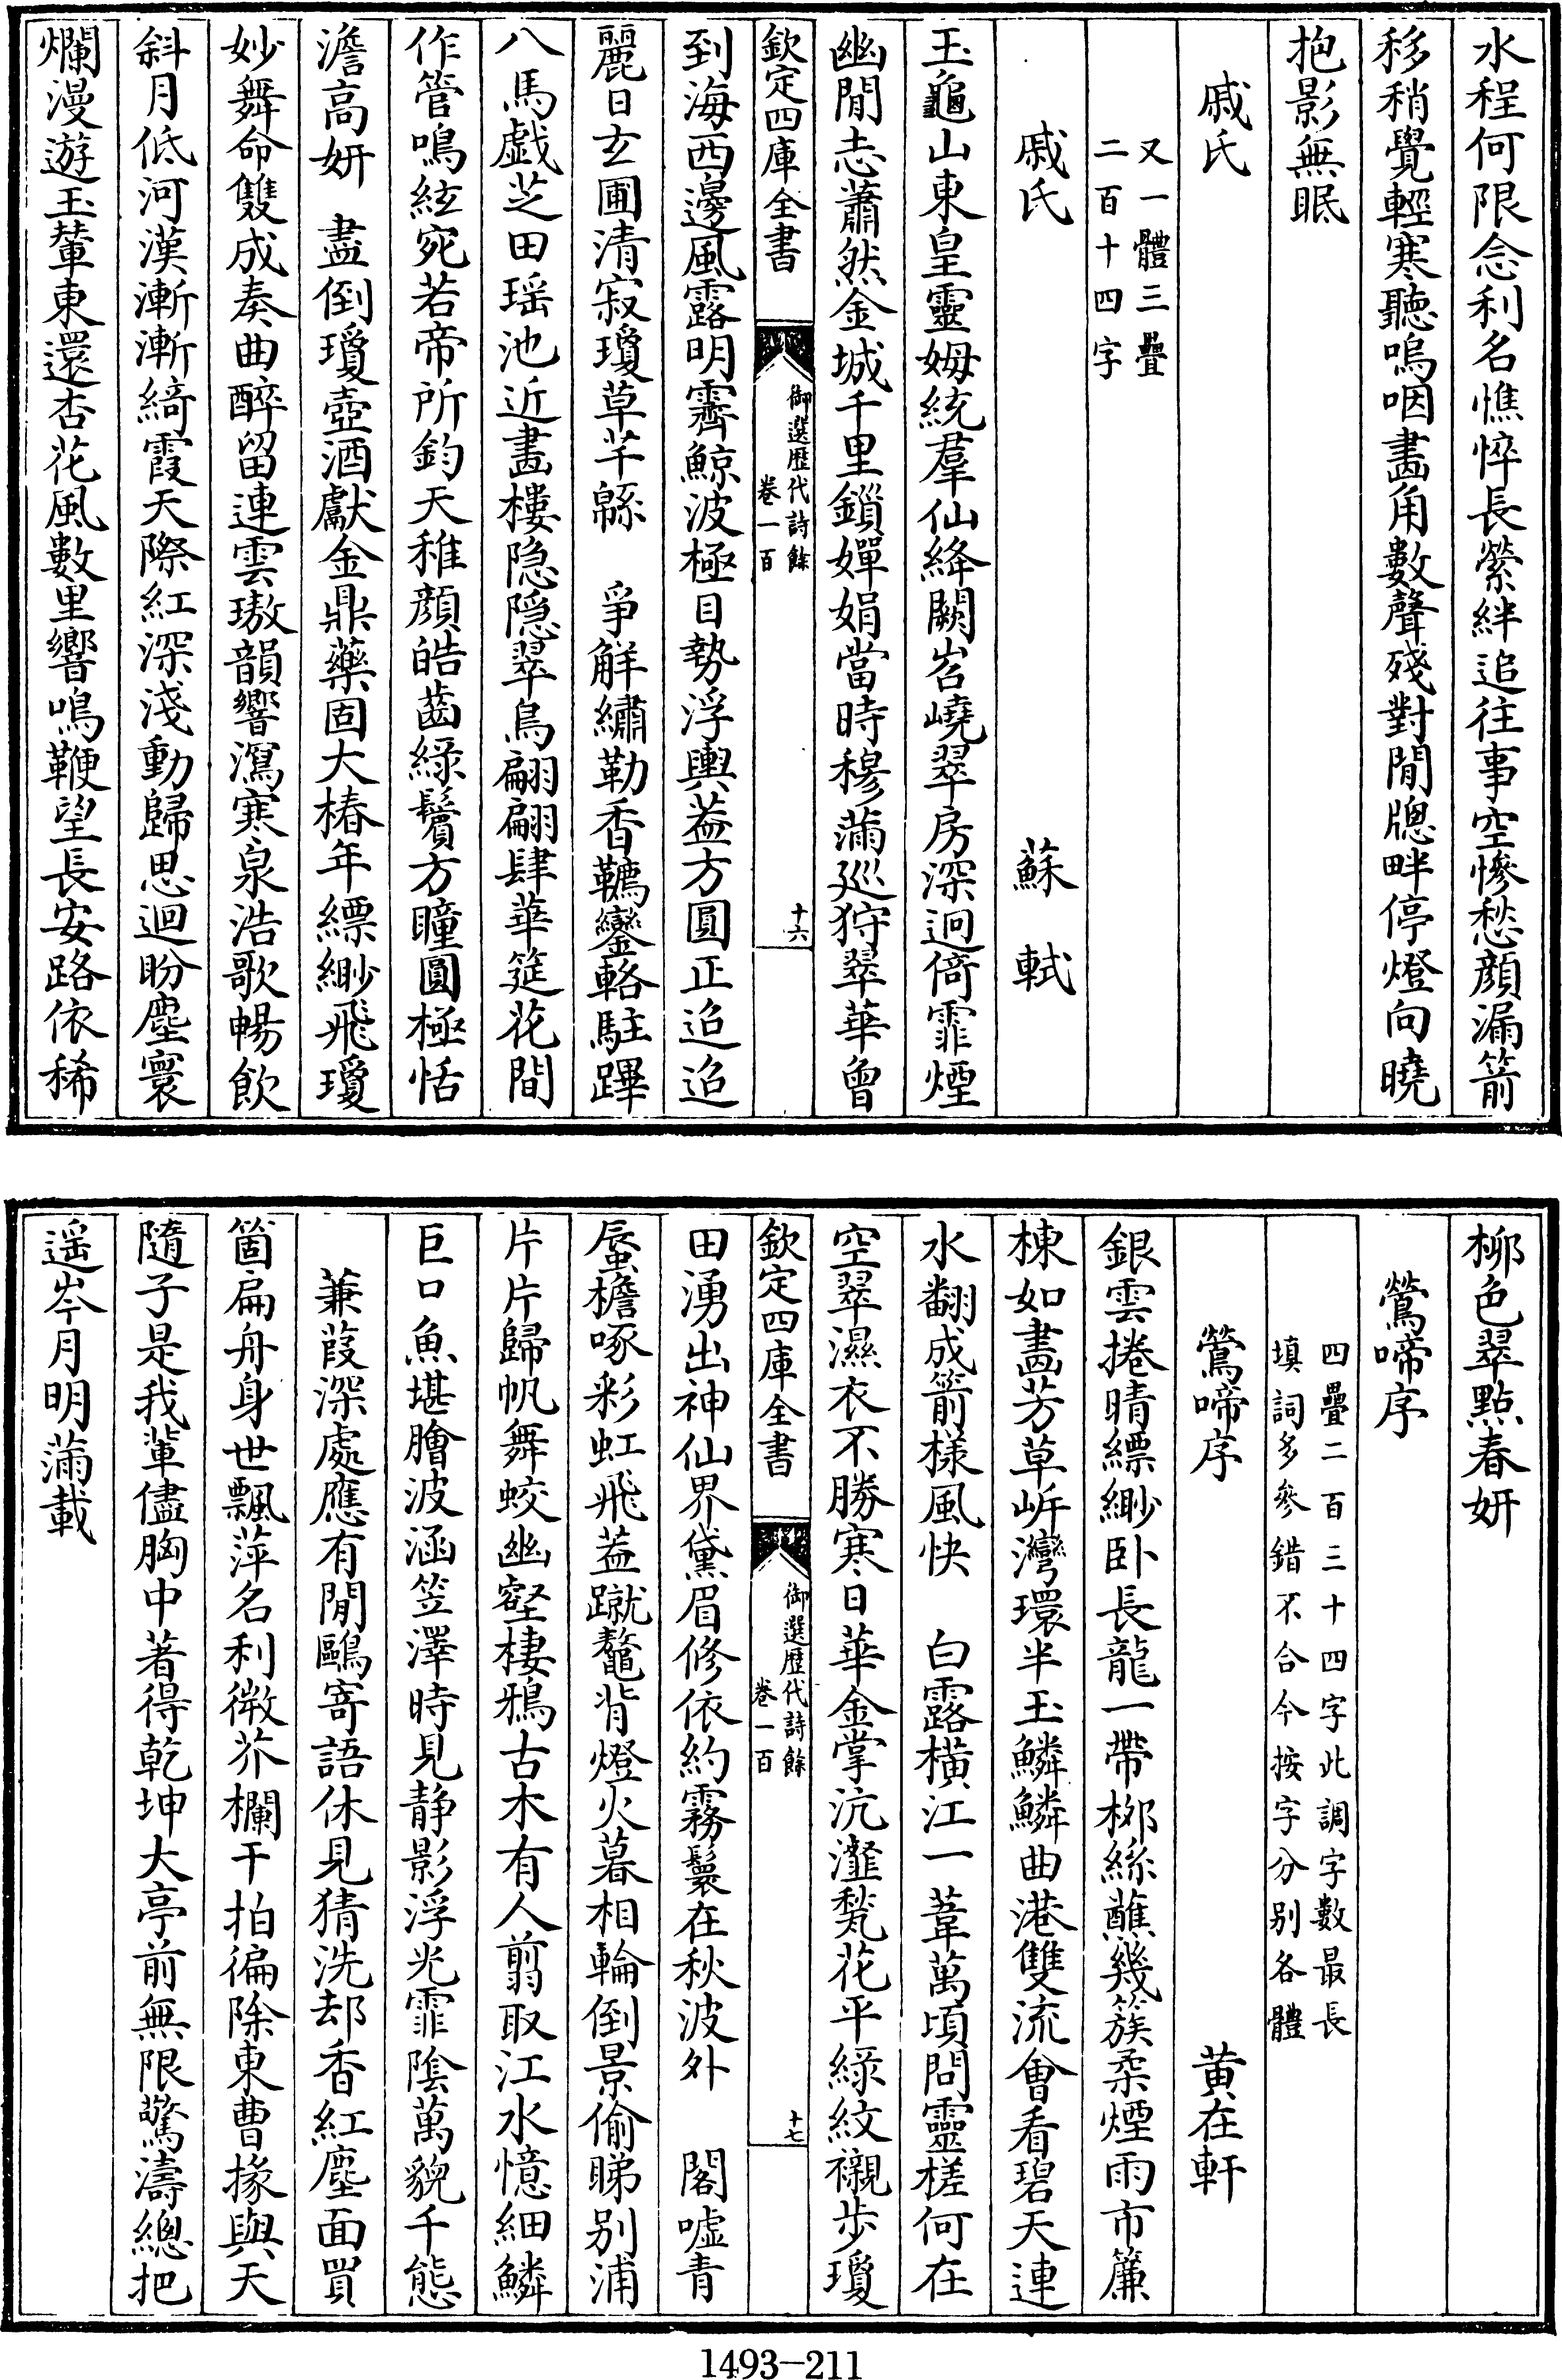 水程何限念利名憔悴長縈絆追往事空慘愁顔漏箭
移稍覺輕寒聽嗚咽畵角數聲殘對閒牕畔停燈向曉
抱影無眠
戚氏
又一體三疊
二百十四字
戚氏　蘇軾
玉龜山東皇靈姆統羣仙絳闕岧嶢翠房深迥倚霏煙
幽閒志蕭然金城千里鎻嬋娟當時穆滿巡狩翠華曾
欽定四庫全書
御選歷代詩餘
卷一百
十六
到海西邊風露明霽鯨波極目勢浮輿葢方圓正迢迢
麗日玄圃清寂瓊草芊緜　爭解繡勒香韉鸞輅駐蹕
八馬戱芝田瑶池近畵樓隐隠翠鳥翩翩肆華筵花間
作管鳴絃宛若帝所鈞天稚顔皓齒緑鬢方瞳圓極恬
澹高妍　盡倒瓊壺酒獻金鼎藥固大椿年縹緲飛瓊
妙舞命雙成奏曲醉留連雲璈韻響瀉寒泉浩歌暢飲
斜月低河漢漸漸綺霞天際紅深淺動歸思迴盼塵寰
爛漫遊玉輦東還杏花風數里響鳴鞭望長安路依稀
柳色翠點春妍
鶯啼序
四疊二百三十四字此調字數最長
填詞多參錯不合今按字分别各體
鶯啼序　黄在軒
銀雲捲晴縹緲卧長龍一帶栁絲蘸幾簇柔煙雨市簾
棟如畵芳草岍灣環半玉鱗鱗曲港雙流會看碧天連
水翻成箭様風快　白露橫江一葦萬頃問靈槎何在
空翠濕衣不勝寒日華金掌沆瀣甃花平緑紋襯步瓊
欽定四庫全書
御選歷代詩餘
卷一百
十七
田湧出神仙界黛眉修依約霧鬟在秋波外　閣嘘青
蜃檐啄彩虹飛葢蹴鼇背燈火暮相輪倒景偷睇别浦
片片歸帆舞蛟幽壑棲鴉古木有人剪取江水憶細鱗
巨口魚堪膾波涵笠澤時見静影浮光霏陰萬貌千態
蒹葭深處應有閒鷗寄語休見猜洗却香紅塵面買
箇扁舟身世飄萍名利微芥欄干拍徧除東曹掾與天
隨子是我輩儘胸中著得乾坤大亭前無限驚濤總把
遥岑月明滿載
1493—211